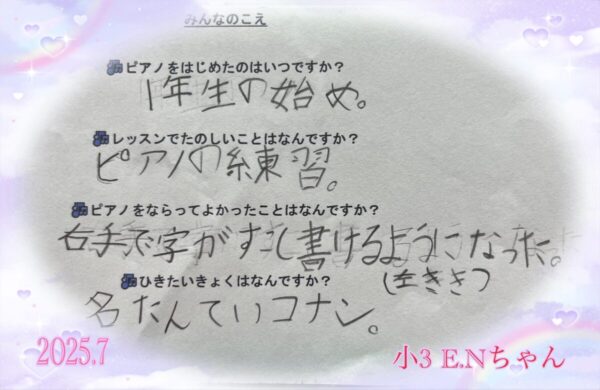 みんなのこえ
ピアノをはじめたのはいつですか?
1年生の始め。
レッスンでたのしいことはなんですか?
ピアノの練習。
ピアノをならってよかったことはなんですか?
右手で字がすこし書けるようになった。
(左きき)
ひきたいきょくはなんですか?
名たんていコナン。
2025.7
小3 E.Nちゃん